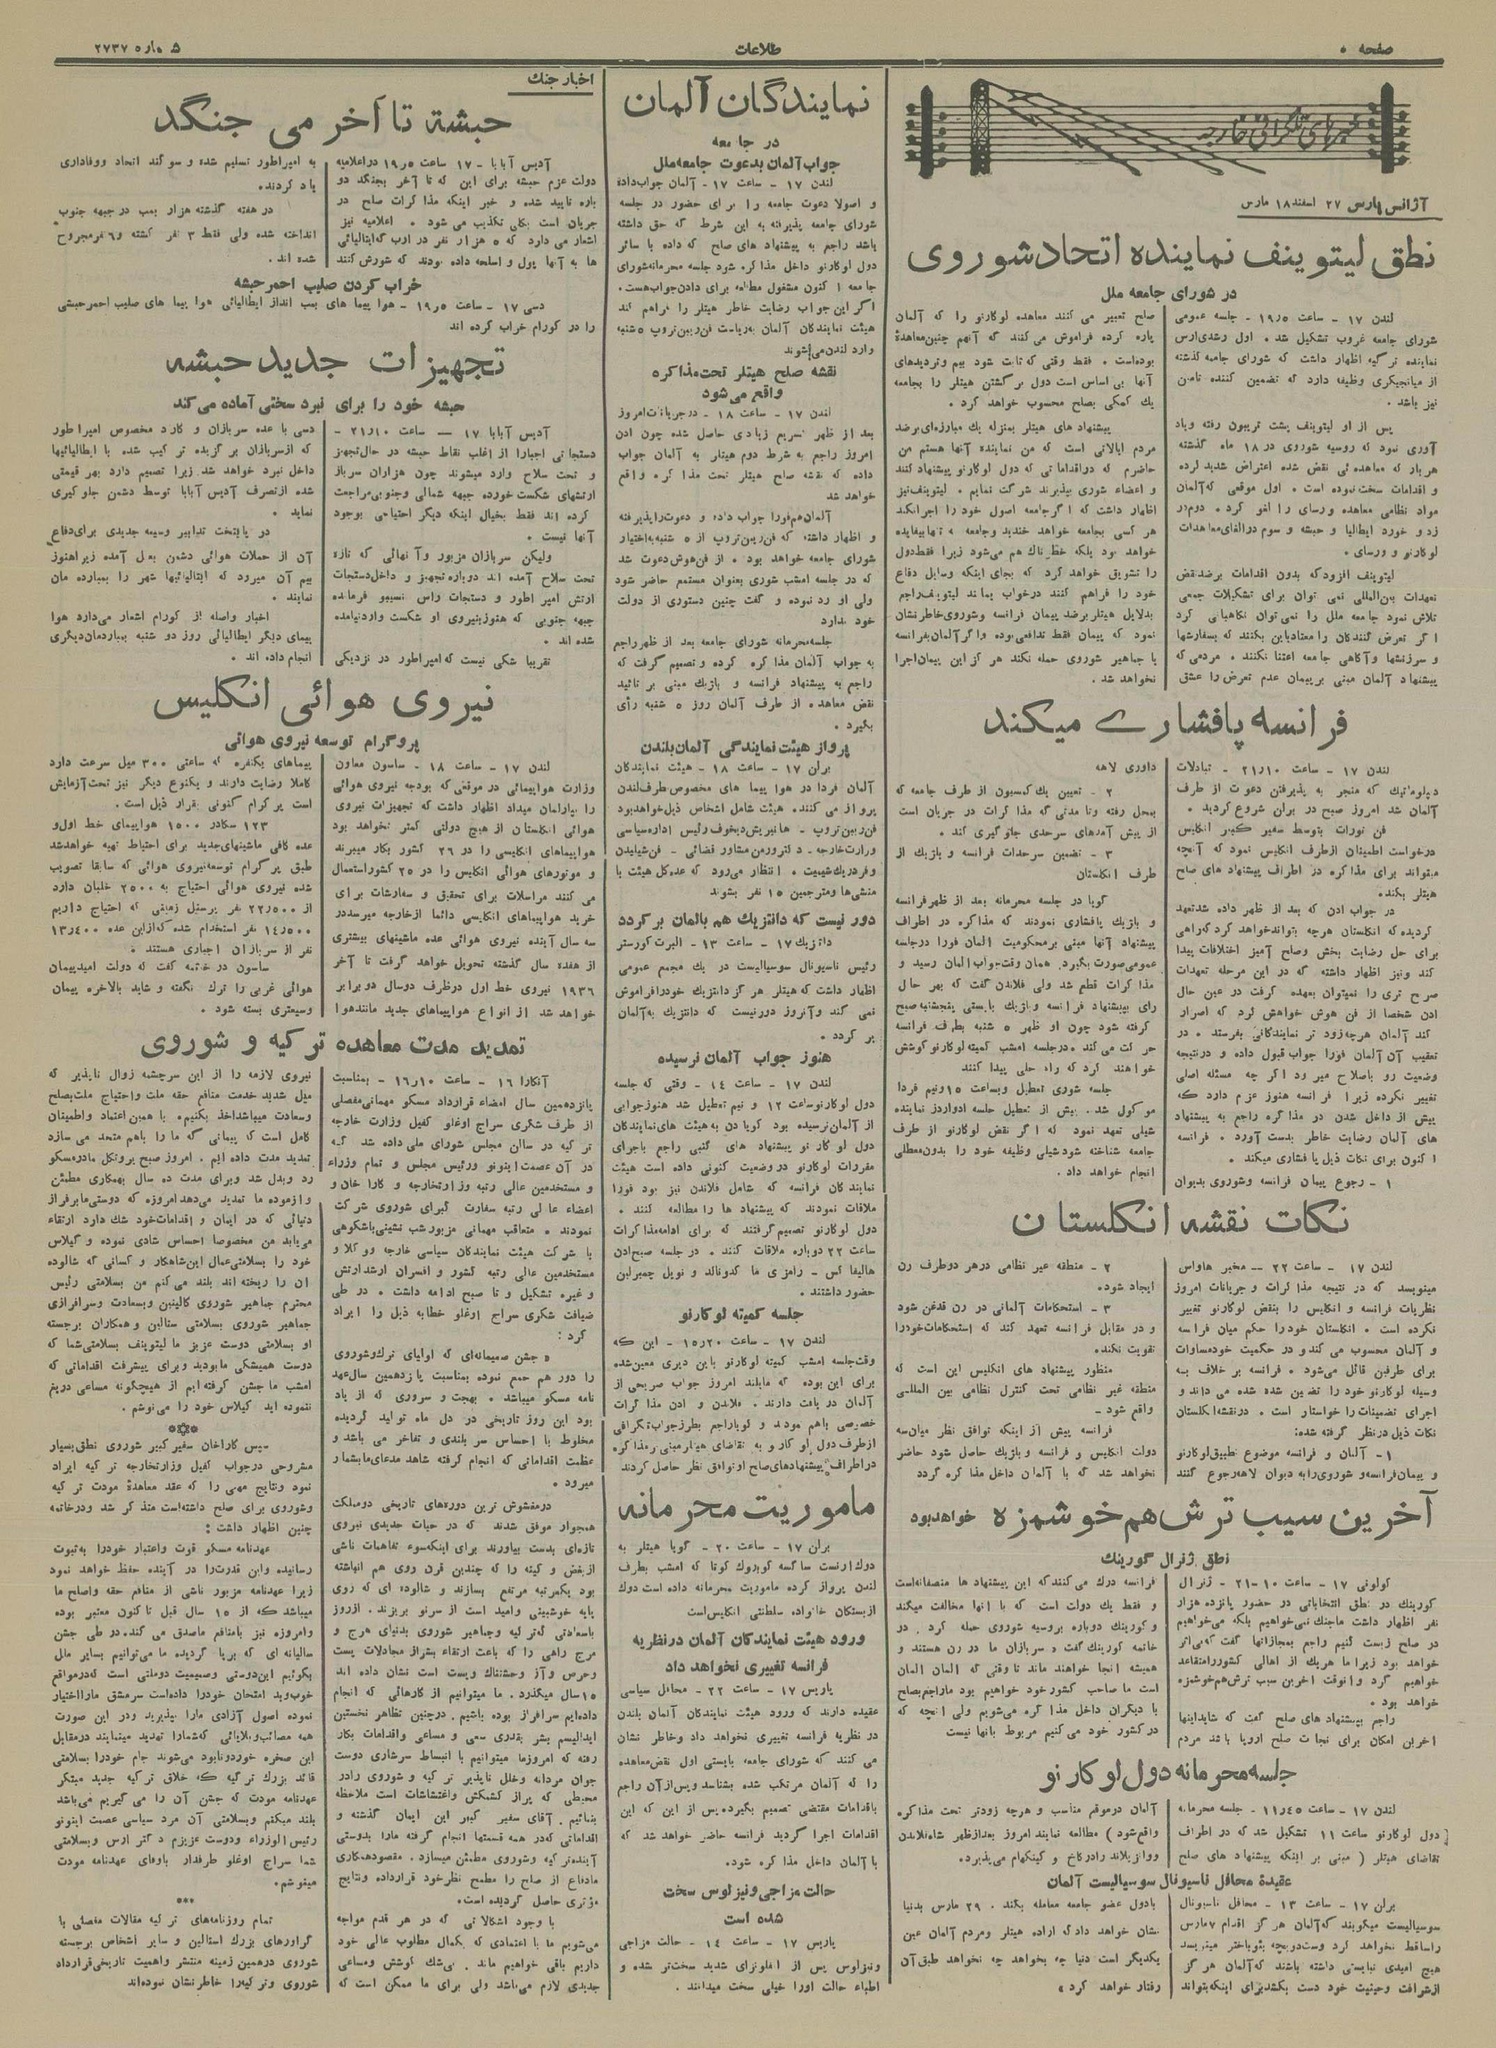 صفحه ۵
طلاعات
شماره ۲۷۳۷
خبرهای تلگرافی خارجه
آژانس پارس ۲۷ اسفند ۱۸ مارس
نطق لیتوینف نماینده اتحاد شوروی
در شورای جامعه ملل
لندن ۱۷ - ساعت ۱۹٫۵ - جلسه عمومی
شورای جامعه غروب تشکیل شد. اول رشدی ارس
نماینده ترکیه اظهار داشت که شورای جامعه گذشته
از میانجیگری وظیفه دارد که تضمین کننده تامین
نیز باشد.
پس از او لیتوینف پشت تریبون رفته و یاد
آوری نمود که روسیه شوروی در ۱۸ ماه گذشته
هر بار که معاهده ئی نقض شده اعتراض شدید کرده
و اقدامات سخت نموده است. اول موقعی که آلمان
مواد نظامی معاهده ورسای را لغو کرد. دوم در
زد و خورد ایطالیا و حبشه و سوم در الغای معاهدات
لوکارنو و ورسای.
لیتوینف افزود که بدون اقدامات بر ضد نقض
تعهدات بین‌المللی نمی توان برای تشکیلات جمعی
تلاش نمود جامعه ملل را نمی‌توان نگاهبانی کرد
اگر تعرض کنندگان را معتاد باین بکنند که بسفارشها
و سرزنشها و آگاهی جامعه اعتنا نکنند. مردمی که
پیشنهاد آلمان مبنی بر پیمان عدم تعرض را عشق
صلح تعبیر می کنند معاهده لوکارنو را که آلمان
پاره کرده فراموش می‌کنند که آنهم چنین معاهدهٔ
بوده‌است. فقط وقتی که ثابت شود بیم و تردیدهای
آنها بی اساس است دول برگشتن هیتلر را بجامعه
یک کمکی بصلح محسوب خواهد کرد.
پیشنهاد های هیتلر بمنزله یک مبارزه‌ای بر ضد
مردم ایالاتی است که من نماینده آنها هستم من
حاضرم که در اقداماتی که دول لوکارنو پیشنهاد کنند
و اعضاء شوری بپذیرند شرکت نمایم. لیتوینف نیز
اظهار داشت که اگر جامعه اصول خود را اجرا نکند
هر کسی بجامعه خواهد خندید و جامعه نه تنها بیفایده
خواهد بود بلکه خطرناک هم می‌شود زیرا فقط دول
را تشویق خواهد کرد که بجای اینکه وسایل دفاع
خود را فراهم کنند درخواب بمانند لیتوینف راجم
بدلایل هیتلر بر ضد پیمان فرانسه و شوروی خاطر نشان
نمود که پیمان فقط تدافعی بوده و اگر آلمان بفرانسه
یا جماهیر شوروی حمله نکند هرگز این پیمان اجرا
نخواهد شد.
فرانسه پافشاری میکند
لندن ۱۷ - ساعت ۲۱٫۱۰ - تبادلات
دیپلوماتیک که منجر به پذیرفتن دعوت از طرف
آلمان شد امروز صبح در برلن شروع گردید.
فن نورات بتوسط سفیر کبیر انگلیس
درخواست اطمینان از طرف انگلیس نمود که آنچه
میتواند برای مذاکره در اطراف پیشنهاد های صلح
هیتلر بکند.
در جواب ادن که بعد از ظهر داده شد تعهد
گردیده که انگلستان هرچه بتواند خواهد کرد که راهی
برای حل رضایت بخش و صلح آمیز اختلافات پیدا
کند ونیز اظهار داشته که در این مرحله تعهدات
صریح تری را نمیتوان بعهده گرفت در عین حال
ادن شخصا از فن هوش خواهش کرد که اصرار
کند آلمان هرچه زود تر نمایندگانی بفرستد. در
تعقیب آن آلمان فورا جواب قبول داده و درنتیجه
وضعیت رو باصلاح میرود اگر چه مسئله اصلی
تغییر نکرده زیرا فرانسه هنوز عزم دارد که
پیش از داخل شدن در مذاکره راجم به پیشنهاد
های آلمان رضایت خاطر بدست آورد. فرانسه
اکنون برای نکات ذیل پافشاری میکند.
۱ - رجوع پیمان فرانسه وشوروی بدیوان
داوری لاهه
۲ - تعیین یک کمسیون از طرف جامعه که
بمحل رفته وتا مدتی که مذاکرات در جریان است
از پیش آمدهای سرحدی جلوگیری کند.
۳ - تضمین سرحدات فرانسه و بلژیک از
طرف انگلستان
گویا در جلسه محرمانه بعد از ظهر فرانسه
و بلژیک پافشاری نمودند که مذاکره در اطراف
پیشنهاد آنها مبنی بر محکومیت آلمان فورا در جلسه
عمومی صورت بگیرد. همان وقت جواب آلمان رسید و
مذاکرات قطع شد ولی فلاندن گفت که بهر حال
رأی به پیشنهاد فرانسه و بلژیک بایستی پنجشنبه صبح
گرفته شود چون او ظهر ۵ شنبه بطرف فرانسه
حرکت می‌کند. درجلسه امشب کمیته لوکارنو کوشش
خواهند کرد که راه حلی پیدا کنند
جلسه شوری تعطیل و بساعت ۱۵ و نیم فردا
موکول شد. پیش از تعطیل جلسه ادواردز نماینده
شیلی تعهد نمود که اگر نقض لوکارنو از طرف
جامعه شناخته شود شیلی وظیفه خود را بدون معطلی
انجام خواهد داد.
نکات نقشه انگلستان
لندن ۱۷ - ساعت ۲۲ - مخبر هاواس
مینویسد که در نتیجه مذاکرات و جریانات امروز
نظریات فرانسه و انگلیس را بنقض لوکارنو تغییر
نکرده است. انگلستان خود را حکم میان فرانسه
و آلمان محسوب می کند و در حکمیت خود مساوات
برای طرفین قائل می‌شود. فرانسه بر خلاف بـه
وسیله لوکارنو خود را تضمین شده شده می داند و
اجرای تضمینات را خواستار است. در نقشه انگلستان
نکات ذیل در نظر گرفته شده:
۱ - آلمان و فرانسه موضوع تطبیق لوکارنو
و پیمان فرانسه و شوروی را به دیوان لاهه رجوع کنند
۲ - منطقه غیر نظامی در هر دو طرف رن
ایجاد شود.
۳ - استحکامات آلمانی در رن قدغن شود
و در مقابل فرانسه تعهد کند که استحکامات خود را
تقویت نکند.
منظور پیشنهاد های انگلیس این است که
منطقه غیر نظامی تحت کنترل نظامی بین المللی
واقع شود -
فرانسه پیش از اینکه توافق نظر میان سه
دولت انگلیس و فرانسه و بلژیک حاصل شود حاضر
نخواهد شد که با آلمان داخل مذاکره گردد
آخرین سیب ترش هم خوشمزه خواهد بود
نطق ژنرال گورینک
کولونی ۱۷ - ساعت ۲۱-۱۰ - ژنرال
گورینک در نطق انتخاباتی در حضور پانزده هزار
نفر اظهار داشت ما جنگ نمی‌خواهیم بلکه می‌خواهیم
در صلح زیست کنیم راجم بمجازاتها گفت که بی‌اثر
خواهد بود زیرا ما هر یک از اهالی کشور را متقاعد
خواهیم کرد وآنوقت آخرین سیب ترش هم خوشمزه
خواهد بود.
راجم پیشنهاد های صلح گفت که شاید اینها
آخرین امکان برای نجات صلح اروپا باشد مردم
فرانسه درک می‌کنند که این پیشنهاد ها منصفانه است
و فقط یک دولت است که با آنها مخالفت میکند
و گورینک دوباره بروسیه شوروی حمله کرد. در
خاتمه گورینک گفت. سربازان ما در رن هستند و
همیشه آنجا خواهند ماند تا وقتی که آلمان آلمان
است ما صاحب کشور خود خواهیم بود ما راجم بصلح
با دیگران داخل مذاکره می‌شویم ولی آنچه که
درکشور خود می‌کنیم مربوط بآنها نیست
جلسه محرمانه دول لوکارنو
لندن ۱۷ - ساعت ۱۱٫۴۵ - جلسه محرمانه
دول لوکارنو ساعت ۱۱ تشکیل شد که در اطراف
تقاضای هیتلر (مبنی بر اینکه پیشنهاد های صلح
آلمان درموقع مناسب و هرچه زودتر تحت مذاکره
واقع شود) مطالعه نمایند امروز بعد از ظهر شاه فلاندن
و وان زیلاند را در کاخ بوکینگهام می‌پذیرد.
عقیدهٔ محافل ناسیونال سوسیالیست آلمان
برلن ۱۷ - ساعت ۱۳ - محافل ناسیونال
سوسیالیست میگویند که آلمان هرگز اقدام ۷ مارس
راساقط نخواهد کرد
هیچ امیدی نبایستی داشته باشند که آلمان هرگز
از شرافت و حیثیت خود دست بکشد برای اینکه بتواند
بادول عضو جامعه معامله بکند. ۲۹ مارس بدنیا
نشان خواهد داد که اراده هیتلر ومردم آلمان عین
یکدیگر است دنیا چه بخواهد چه نخواهد طبق آن
رفتار خواهد کرد.
نمایندگان آلمان
در جامعه
جواب آلمان بدعوت جامعه ملل
لندن ۱۷ - ساعت ۱۷ - آلمان جواب داده
و اصولا دعوت جامعه را برای حضور در جلسه
شورای جامعه پذیرفته به این شرط که حق داشته
باشد راجم به پیشنهاد های صلح که داده با سائر
دول لوکارنو داخل مذاکره شود جلسه محرمانه شورای
جامعه اکنون مشغول مطالعه برای دادن جواب هست.
اگر این جواب رضایت خاطر هیتلر را فراهم کند
هیئت نمایندگان آلمان بریاست فن ربین تروپ ۵ شنبه
وارد لندن می‌شوند
نقشه صلح هیتلر تحت مذاکره
واقع می‌شود
لندن ۱۷ - ساعت ۱۸ - در جریانات امروز
بعد از ظهر تسریع زیادی حاصل شده چون ادن
امروز راجم به شرط دوم هیتلر به آلمان جواب
داده که نقشه صلح هیتلر تحت مذاکره واقع
خواهد شد
آلمان هم فورا جواب داده و دعوت را پذیرفته
و اظهار داشته که فن ربین تروپ از ۵ شنبه به اختیار
شورای جامعه خواهد بود. از فن هوش دعوت شد
که در جلسه امشب شوری بعنوان مستمع حاضر شود
ولی او رد نموده و گفت چنین دستوری از دولت
خود ندارد
جلسه محرمانه شورای جامعه بعد از ظهر راجم
به جواب آلمان مذاکره کرده و تصمیم گرفت که
راجم به پیشنهاد فرانسه و بلژیک مبنی بر تائید
نقض معاهده از طرف آلمان روز ۵ شنبه رأی
بگیرد.
پرواز هیئت نمایندگی آلمان بلندن
برلن ۱۷ - ساعت ۱۸ - هیئت نمایندگان
آلمان فردا در هوا پیما های مخصوص طرف لندن
پرواز می کنند. هیئت شامل اشخاص ذیل خواهد بود
فن ربین تروپ - هانریش دیخوف رئیس اداره سیاسی
وزارت خارجه - دکتر ورمن مشاور قضائی -
انتظار می‌رود که عده کل هیئت با
منشی‌ها ومترجمین ۱۵ نفر بشوند
دور نیست که دانتزیک هم بآلمان برگردد
دانتزیک ۱۷ - ساعت ۱۳ - البرت فورستر
رئیس ناسیونال سوسیالیست در یک مجمع عمومی
اظهار داشت که هیتلر هرگز دانتزیک خود را فراموش
نمی کند وآنروز دور نیست که دانتزیک به آلمان
بر گردد.
هنوز جواب آلمان نرسیده
لندن ۱۷ - ساعت ۱۴ - وقتی که جلسه
دول لوکارنو ساعت ۱۲ و نیم تعطیل شد هنوز جوابی
از آلمان نرسیده بود گویا ادن به هیئت های نمایندگان
دول لوکارنو پیشنهاد های کتبی راجم باجرای
مقررات لوکارنو در وضعیت کنونی داده است هیئت
نمایندگان فرانسه که شامل فلاندن نیز بود فورا
ملاقات نمودند که پیشنهاد ها را مطالعه کنند.
دول لوکارنو تصمیم گرفتند که برای ادامه مذاکرات
ساعت ۲۲ دوباره ملاقات کنند. در جلسه صبح ادن
هالیفاکس - رامزی ماکدونالد و نویل چمبرلین
حضور داشتند.
جلسه کمیته لوکارنو
لندن ۱۷ - ساعت ۱۵٫۲۰ - این که
وقت جلسه امشب کمیته لوکارنو باین دیری معین شده
برای این بوده که مایلند امروز جواب صریحی از
آلمان دریافت دارند. فلاندن و ادن مذاکرات
خصوصی باهم نمودند و گویا راجم بطرز جواب تلگرافی
از طرف دول لوکارنو به تقاضای هیتلر مبنی بر مذاکره
در اطراف پیشنهادهای صلح او توافق نظر حاصل کردند
ماموریت محرمانه
برلن ۱۷ - ساعت ۲۰ - گویا هیتلر به
دوک ارنست ساکسه کوبورگ گوتا که امشب بطرف
لندن پرواز کرده ماموریت محرمانه داده است دوک
از بستگان خانواده سلطنتی انگلیس است
ورود هیئت نمایندگان آلمان در نظریه
فرانسه تغییری نخواهد داد
پاریس ۱۷ - ساعت ۲۲ - محافل سیاسی
عقیده دارند که ورود هیئت نمایندگان آلمان بلندن
در نظریه فرانسه تغییری نخواهد داد وخاطر نشان
می کنند که شورای جامعه بایستی اول نقض معاهده
را که آلمان مرتکب شده بشناسد وپس از آن راجم
باقدامات مقتضی تصمیم بگیرد پس از این که این
اقدامات اجرا گردید فرانسه حاضر خواهد شد که
با آلمان داخل مذاکره شود.
حالت مزاجی ونیزلوس سخت
شده است
پاریس ۱۷ - ساعت ۱۴ - حالت مزاجی
ونیزلوس پس از آنفلونزای شدید سخت تر شده و
اطباء حالت او را خیلی سخت میدانند.
اخبار جنگ
حبشه تا آخر می جنگد
آدیس آبابا - ۱۷ ساعت ۱۹٫۵ در اعلامیه
دولت عزم حبشه برای این که تا آخر بجنگد دو
باره تایید شده و خبر اینکه مذاکرات صلح در
جریان است بکلی تکذیب می شود. اعلامیه نیز
اشعار می دارد که ۵ هزار نفر در ارب که ایتالیائی
ها به آنها پول و اسلحه داده بودند که شورش کنند
به امپراطور تسلیم شده و سوگند اتحاد و وفاداری
یاد کردند.
در هفته گذشته هزار بمب در جبهه جنوب
انداخته شده ولی فقط ۳ نفر کشته و ۶ نفر مجروح
شده اند.
خراب کردن صلیب احمر حبشه
دسی ۱۷ - ساعت ۱۹٫۵ - هوا پیما های بمب انداز ایطالیائی هوا پیما های صلیب احمر حبشی
را در کورام خراب کرده اند
تجهیزات جدید حبشه
حبشه خود را برای نبرد سختی آماده می‌کند
آدیس آبابا ۱۷ — ساعت ۲۱٫۱۰ -
دستجاتی اجبارا از اغلب نقاط حبشه در حال تجهیز
و تحت سلاح وارد میشوند چون هزاران سرباز
ارتشهای شکست خورده جبهه شمالی وجنوبی مراجعت
کرده اند فقط بخیال اینکه دیگر احتیاجی بوجود
آنها نیست.
ولیکن سربازان مزبور وآنهائی که تازه
تحت سلاح آمده اند دوباره تجهیز و داخل دستجات
ارتش امپراطور و دستجات راس نسیبو فرمانده
جبهه جنوبی که هنوز بنیروی او شکست وارد نیامده
شده اند.
تقریبا شکی نیست که امپراطور در نزدیکی
دسی با عده سربازان و گارد مخصوص امپراطور
که از سربازان برگزیده ترکیب شده با ایطالیائیها
داخل نبرد خواهد شد زیرا تصمیم دارد بهر قیمتی
شده از تصرف آدیس آبابا توسط دشمن جلوگیری
نماید.
در پایتخت تدابیر وسیعه جدیدی برای دفاع
آن از حملات هوائی دشمن بعمل آمده زیرا هنوز
بیم آن میرود که ایتالیائیها شهر را بمبارده مان
نمایند.
اخبار واصله از کورام اشعار میدارد هوا
پیمای دیگر ایطالیائی روز دو شنبه بمباردمان دیگری
انجام داده اند.
نیروی هوائی انگلیس
پروگرام توسعه نیروی هوائی
لندن ۱۷ - ساعت ۱۸ - ساسون معاون
وزارت هواپیمائی در موقعی که بودجه نیروی هوائی
را بپارلمان میداد اظهار داشت که تجهیزات نیروی
هوائی انگلستان از هیچ دولتی کمتر نخواهد بود
هواپیماهای انگلیسی را در ۲۶ کشور بکار میبرند
و موتورهای هوائی انگلیس را در ۲۵ کشور استعمال
می کنند مراسلات برای تحقیق و سفارشات برای
خرید هواپیماهای انگلیسی دائما از خارجه میرسد در
سه سال آینده نیروی هوائی عده ماشینهای بیشتری
از هفده سال گذشته تحویل خواهد گرفت تا آخر
۱۹۳۶ نیروی خط اول درظرف دوسال دو برابر
خواهد شد از انواع هواپیماهای جدید مانند هوا
پیماهای یکنفره که ساعتی ۳۰۰ میل سرعت دارد
کاملا رضایت دارند و یکنوع دیگر نیز تحت آزمایش
است پرگرام کنونی بقرار ذیل است.
۱۲۳ سکادر ۱۵۰۰ هواپیمای خط اول و
عده کافی ماشینهای جدید برای احتیاط تهیه خواهد شد
طبق پرگرام توسعه نیروی هوائی که سابقا تصویب
شده نیروی هوائی احتیاج به ۲۵۰۰ خلبان دارد
از ۲۲٫۵۰۰ نفر پرسنل زمینی که احتیاج داریم
۱۴٫۵۰۰ نفر استخدام شده که از این عده ۱۳٫۴۰۰
نفر از سربازان اجباری هستند.
ساسون در خاتمه گفت که دولت امید پیمان
هوائی غربی را ترک نگفته و شاید بالاخره پیمان
وسیعتری بسته شود.
تمدید مدت معاهده ترکیه و شوروی
آنکارا ۱۶ - ساعت ۱۶٫۱۰ - بمناسبت
پانزدهمین سال امضاء قرارداد مسکو مهمانی مفصلی
از طرف شکری سراج اوغلو کفیل وزارت خارجه
ترکیه در سالن مجلس شورای ملی داده شد که
در آن عصمت اینونو ورئیس مجلس و تمام وزراء
و مستخدمین عالی رتبه وزارتخارجه و کاراخان و
اعضاء عالی رتبه سفارت کبرای شوروی شرکت
نمودند. متعاقب مهمانی مزبور شب نشینی باشکوهی
با شرکت هیئت نمایندگان سیاسی خارجه و وکلا و
مستخدمین عالی رتبه کشور و افسران ارشد ارتش
و غیره تشکیل و تا صبح ادامه داشت. در طی
ضیافت شکری سراج اوغلو خطابه ذیل را ایراد
کرد:
« جشن صمیمانه‌ای که اولیای ترک وشوروی
را دور هم جمع نموده بمناسبت پانزدهمین سال عهد
نامه مسکو میباشد. بهجت و سروری که از یاد
بود این روز تاریخی در دل ماه تولید گردیده
مخلوط با احساس سر بلندی و تفاخر می باشد و
عظمت اقداماتی که انجام گرفته شاهد مدعای ما بشمار
میرود.
درمغشوش ترین دوره‌های تاریخی دومملکت
همجوار موفق شدند که در حیات جدیدی نیروی
تازه‌ای بدست بیاورند برای اینکه سوء تفاهمات ناشی
از بغض و کینه را که چندین قرن روی هم انباشته
بود یکمرتبه مرتفع بسازند و شالوده ای که روی
پایه خوشبینی وامید است از سرنو بریزند. از روز
باسعادتی که ترکیه وجماهیر شوروی بدنیای هرج و
مرج راهی را که باعث ارتقاء بشر از مجادلات پست
وحرص وآز وحشتناک وپست است نشان داده اند
۱۵ سال میگذرد. ما میتوانیم از کارهائی که انجام
داده‌ایم سرافراز بوده باشیم. درچنین تظاهر نخستین
ایدالیسم بشر بقدری سعی و مساعی واقدامات بکار
رفته که امروز ما میتوانیم با انبساط سرشاری دوست
جوان مردانه وخلل ناپذیر ترکیه و شوروی را در
محیطی که پر از کشمکش واغتشاشات است ملاحظه
بنمائیم. آقای سفیر کبیر این ایمان گذشته و
اقداماتی که در همه قسمتها انجام گرفته مارا بدوستی
آینده ترکیه وشوروی مطمئن میسازد. مقصود همکاری
مادفاع از صلح را مطمح نظر خود قرار داده ونتایج
موثری حاصل گردیده است.
با وجود اشکالاتی که در هر قدم مواجه
می‌شویم ما با اعتمادی که بکمال مطلوب عالی خود
داریم باقی خواهیم ماند. بی‌شک کوشش ومساعی
جدیدی لازم می باشد ولی برای ما ممکن است که
نیروی لازمه را از این سرچشمه زوال ناپذیر که
میل شدید خدمت منافع حقه ملت واحتیاج ملت بصلح
وسعادت میباشد اخذ بکنیم. با همین اعتماد واطمینان
کامل است که پیمانی که ما را باهم متحد می سازد
تمدید مدت داده ایم. امروز صبح پروتکل مادر مسکو
رد وبدل شد وبرای مدت ده سال بهمکاری مطمئن
وآزموده ما تمدید می‌دهد امروزه که دوستی ما بر فراز
دنیائی که در ایمان و اقدامات خود شک دارد ارتقاء
می‌یابد من مخصوصا احساس شادی نموده و گیلاس
خود را بسلامتی عمال این شاهکار و کسانی که شالوده
آن را ریخته اند بلند می‌کنم من بسلامتی رئیس
محترم جماهیر شوروی کالینین وبسعادت وسرافرازی
جماهیر شوروی بسلامتی ستالین و همکاران برجسته
او بسلامتی دوست عزیز ما لیتوینف بسلامتی شما که
دوست همیشگی ما بودید وبرای پیشرفت اقداماتی که
امشب ما جشن گرفته ایم از هیچگونه مساعی دریغ
ننموده اید گیلاس خود را می‌نوشم.
✲✲✲
سپس کاراخان سفیر کبیر شوروی نطق بسیار
مشروحی درجواب کفیل وزارتخارجه ترکیه ایراد
نمود ونتایج مهمی را که عقد معاهدهٔ مودت ترکیه
وشوروی برای صلح داشته‌است متذکر شد ودرخاتمه
چنین اظهار داشت:
عهدنامه مسکو قوت واعتبار خود را به ثبوت
رسانیده واین قدرت را در آینده حفظ خواهد نمود
زیرا عهدنامه مزبور ناشی از منافع حقه واصلاح ما
میباشد که از ۱۵ سال قبل تاکنون معتبر بوده
وامروزه نیز بامنافع ما صدق می کند. در طی جشن
سالیانه ای که برپا گردیده ما می‌توانیم بسایر ملل
بگوئیم این دوستی وصمیمیت دوملتی است که در مواقع
خوب وبد امتحان خود را داده است سرمشق مارا اختیار
نموده اصول آزادی مارا بپذیرید ودر این صورت
همه مصائب وبلایائی که شمارا تهدید مینمایند درمقابل
این صخره خورد ونابود می‌شوند جام خود را بسلامتی
قائد بزرگ ترکیه که خلاق ترکیه جدید مبتکر
عهدنامه مودت که جشن آن را می گیریم می‌باشد
بلند میکنم وبسلامتی آن مرد سیاسی عصمت اینونو
رئیس الوزراء ودوست عزیزم دکتر ارس وبسلامتی
شما سراج اوغلو طرفدار باوفای عهدنامه مودت
مینوشم.
***
تمام روزنامه‌های ترکیه مقالات مفصلی با
گراورهای بزرگ استالین و سایر اشخاص برجسته
شوروی درهمین زمینه منتشر واهمیت تاریخی قرارداد
شوروی وترکیه را خاطر نشان نموده‌اند